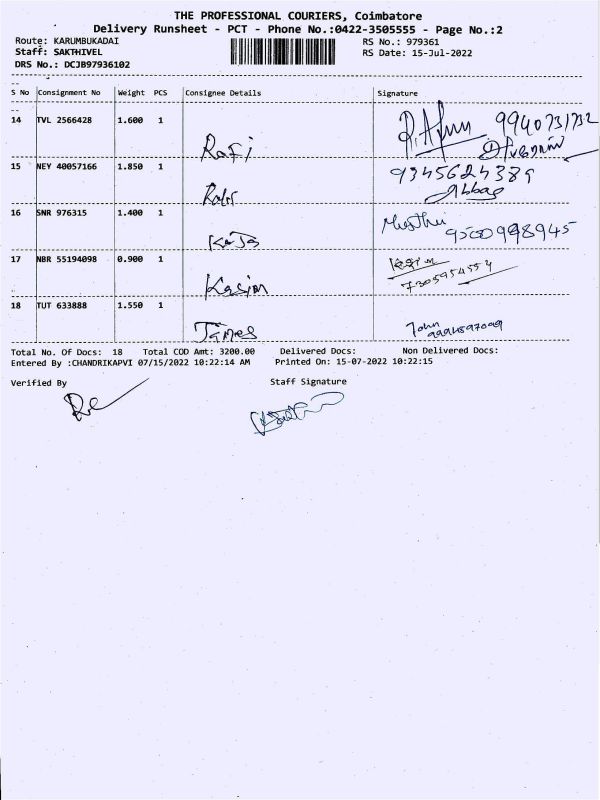 THE PROFESSIONAL COURIERS, Coimbatore
Delivery Runsheet - PCT - Phone No.:0422-3505555 - Page No.:2
Route: KARUMBUKADAI
RS No.: 979361
Staff: SAKTHIVEL
RS Date: 15-Jul-2022
DRS No.: DCJB97936102
S No Consignment No Weight PCS Consignee Details Signature
14 TVL 2566428 1.600 1
9940731732
Rafi
15 NEY 40057166 1.850 1
9345624389
Abbas
16 SNR 976315 1.400 1
17 NBR 55194098 0.900 1
7305954554
Kasim
18 TUT 633888 1.550 1
James
John
Total No. Of Docs: 18 Total COD Amt: 3200.00 Delivered Docs: Non Delivered Docs:
Entered By :CHANDRIKAPVI 07/15/2022 10:22:14 AM Printed On: 15-07-2022 10:22:15
Verified By Staff Signature